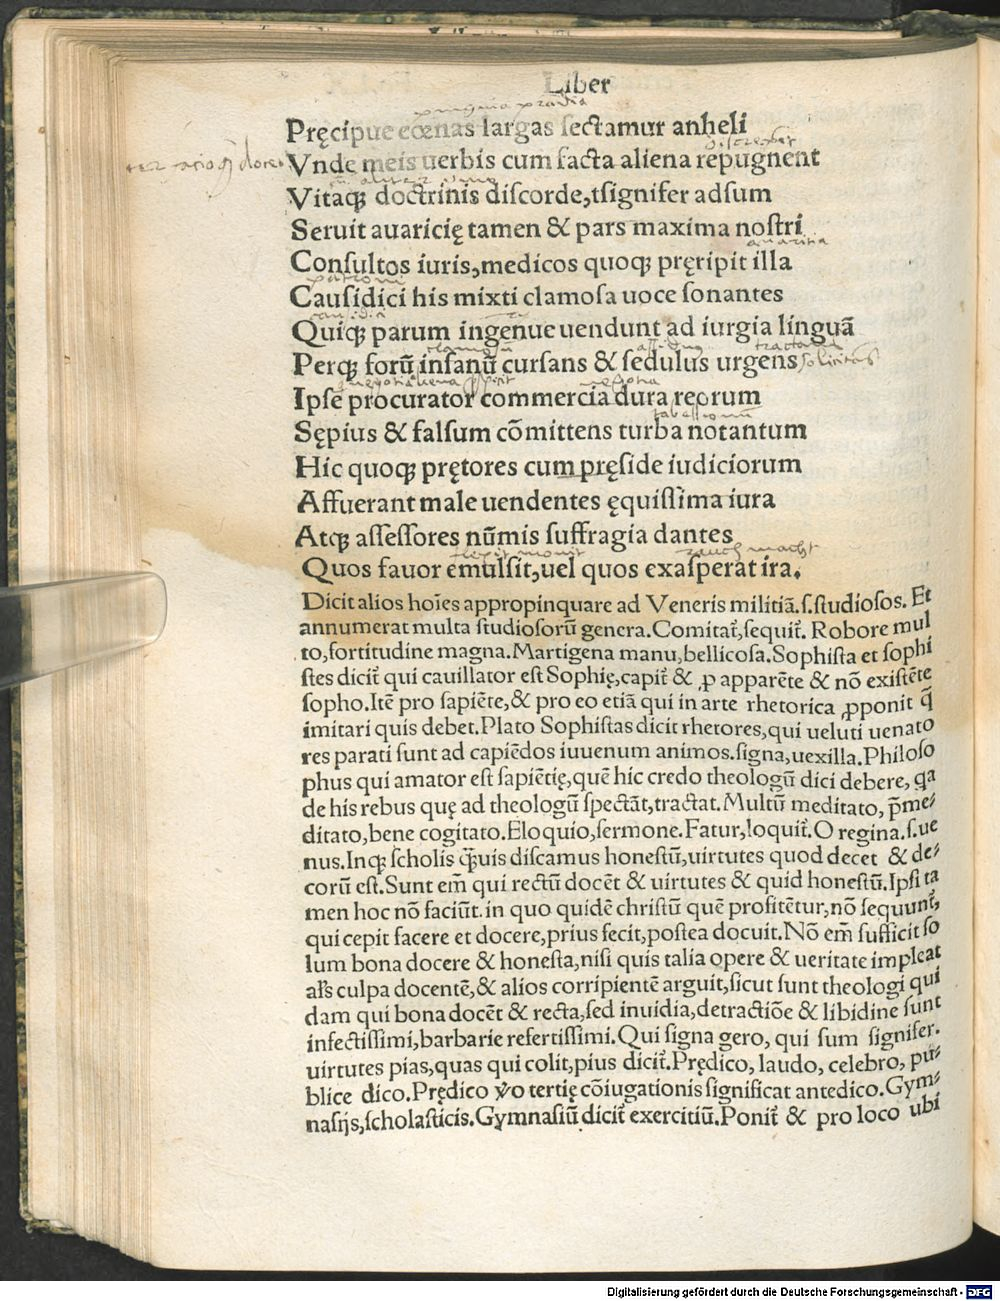 Liber
Pręcipue cœnas largas sectamur anheli
Vnde meis uerbis cum facta aliena repugnent
Vitaqꝫ doctrinis discorde,tsignifer adsum
Seruit auaricię tamen & pars maxima nostri
Consultos iuris,medicos quoqꝫ pręripit illa
Causidici his mixti clamosa uoce sonantes
Quiqꝫ parum ingenue uendunt ad iurgia linguā
Perqꝫ forū insanū cursans & sedulus urgens
Ipse procurator commercia dura reorum
Sępius & falsum cōmittens turba notantum
Hic quoqꝫ prętores cum pręside iudiciorum
Affuerant male uendentes ęquissima iura
Atqꝫ assessores nūmis suffragia dantes
Quos fauor emulsit,uel quos exasperat ira.
Dicit alios hoīes appropinquare ad Veneris militiā.s.studiosos. Et
annumerat multa studiosorū genera.Comitat᷑,sequit᷑. Robore mul
to,fortitudine magna.Martigena manu,bellicosa.Sophista et sophi
stes dicit᷑ qui cauillator est Sophię,capit᷑ & ꝓ apparēte & nō existēte
sopho.Itē pro sapiēte,& pro eo etiā qui in arte rhetorica ꝓponit q̄
imitari quis debet.Plato Sophistas dicit rhetores,qui ueluti uenato
res parati sunt ad capiēdos iuuenum animos.signa,uexilla.Philoso
phus qui amator est sapiētię,quē hic credo theologū dici debere, qa
de his rebus quę ad theologū spectāt,tractat.Multū meditato, p̄me⸗
ditato,bene cogitato.Eloquio,sermone.Fatur,loquit᷑.O regina.s.ue
nus.Inqꝫ scholis q̄uis discamus honestū,uirtutes quod decet & de⸗
corū est.Sunt em̄ qui rectū docēt & uirtutes & quid honestū.Ipsi ta
men hoc nō faciūt.in quo quidē christū quē profitētur,nō sequunt᷑,
qui cepit facere et docere,prius fecit,postea docuit.Nō em̄ sufficit so
lum bona docere & honesta,nisi quis talia opere & ueritate impleat
al's culpa docentē,& alios corripientē arguit,sicut sunt theologi qui
dam qui bona docēt & recta,sed inuidia,detractiōe & libidine sunt
infectissimi,barbarie refertissimi.Qui signa gero, qui sum signifer.
uirtutes pias,quas qui colit,pius dicit᷑.Prędico, laudo, celebro, pu⸗
blice dico.Prędico ꝟo tertię cōiugationis significat antedico.Gym⸗
nasijs,scholasticis.Gymnasiū dicit᷑ exercitiū.Ponit᷑ & pro loco ubi
Digitalisierung gefördert durch die Deutsche Forschungsgemeinschaft - DFG